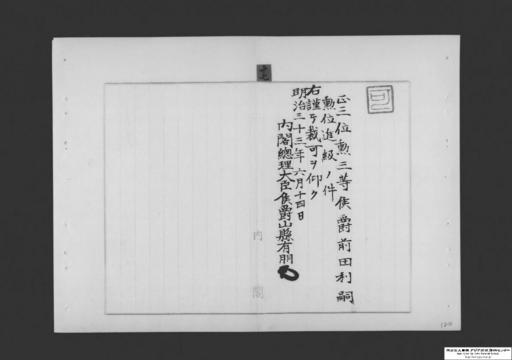 可
正三位勲三等侯爵前田利嗣
勲位進級ノ件
右謹テ裁可ヲ仰ク
明治三十三年六月十四日
内閣總理大臣侯爵山縣有朋
内閣